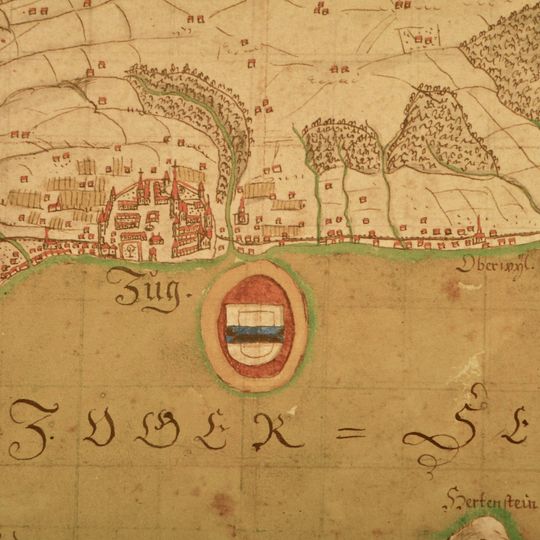 Oberwÿl.
Zug.
ZUGER = SE
Hertenstein